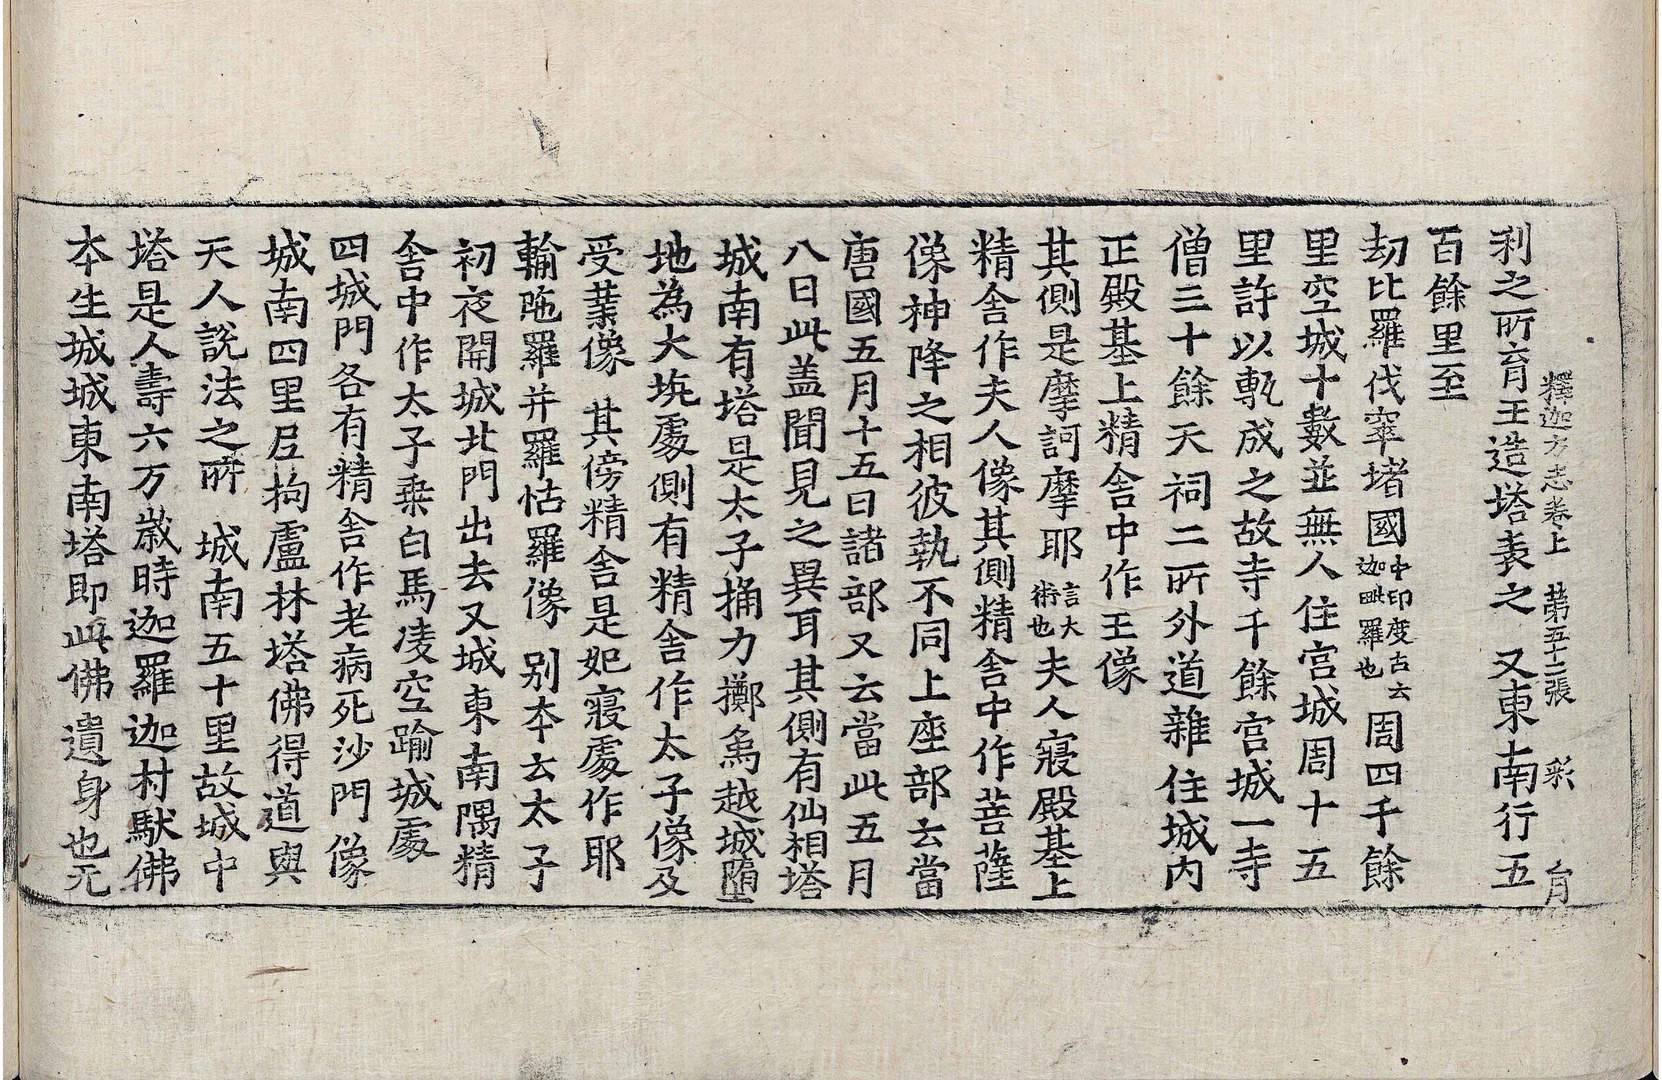 釋迦方志卷上 第五十二張 彩
利之所育王造塔表之 又東南行五
百餘里至
劫比羅伐窣堵國中印度古云迦毗羅也周四千餘
里空城十數並無人住宮城周十五
里許以甎成之故寺千餘宮城一寺
僧三十餘天祠二所外道雜住城內
正殿基上精舍中作王像
其側是摩訶摩耶言大術也夫人寢殿基上
精舍作夫人像其側精舍中作菩薩
像神降之相彼執不同上座部云當
唐國五月十五日諸部又云當此五月
八日此盖聞見之異耳其側有仙相塔
城南有塔是太子捔力擲象越城墮
地為大坑處側有精舍作太子像及
受業像 其傍精舍是妃寢處作耶
輸陁羅并羅怙羅像 別本云太子
初夜開城北門出去又城東南隅精
舍中作太子乘白馬凌空踰城處
四城門各有精舍作老病死沙門像
城南四里尼拘盧林塔佛得道與
天人說法之所 城南五十里故城中
塔是人壽六万歲時迦羅迦村馱佛
本生城城東南塔即此佛遺身也元